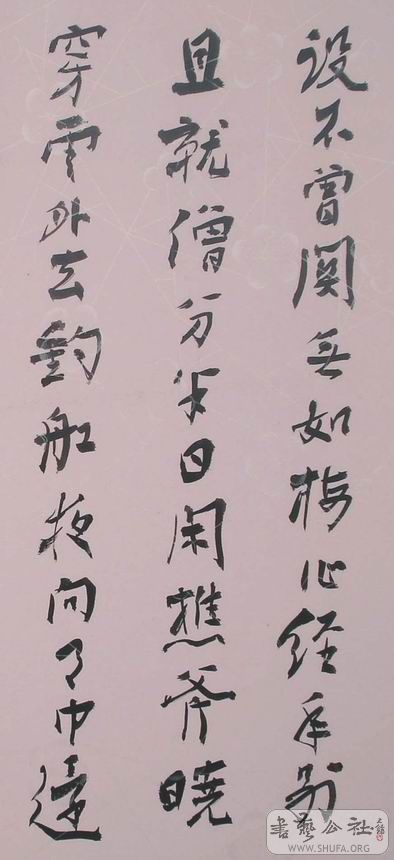 设不曾関無如梅心经年别
且就僧分半日闲樵斧曉
穿雲外去釣船夜向月中還
書藝公社
WWW.SHUFA.ORG